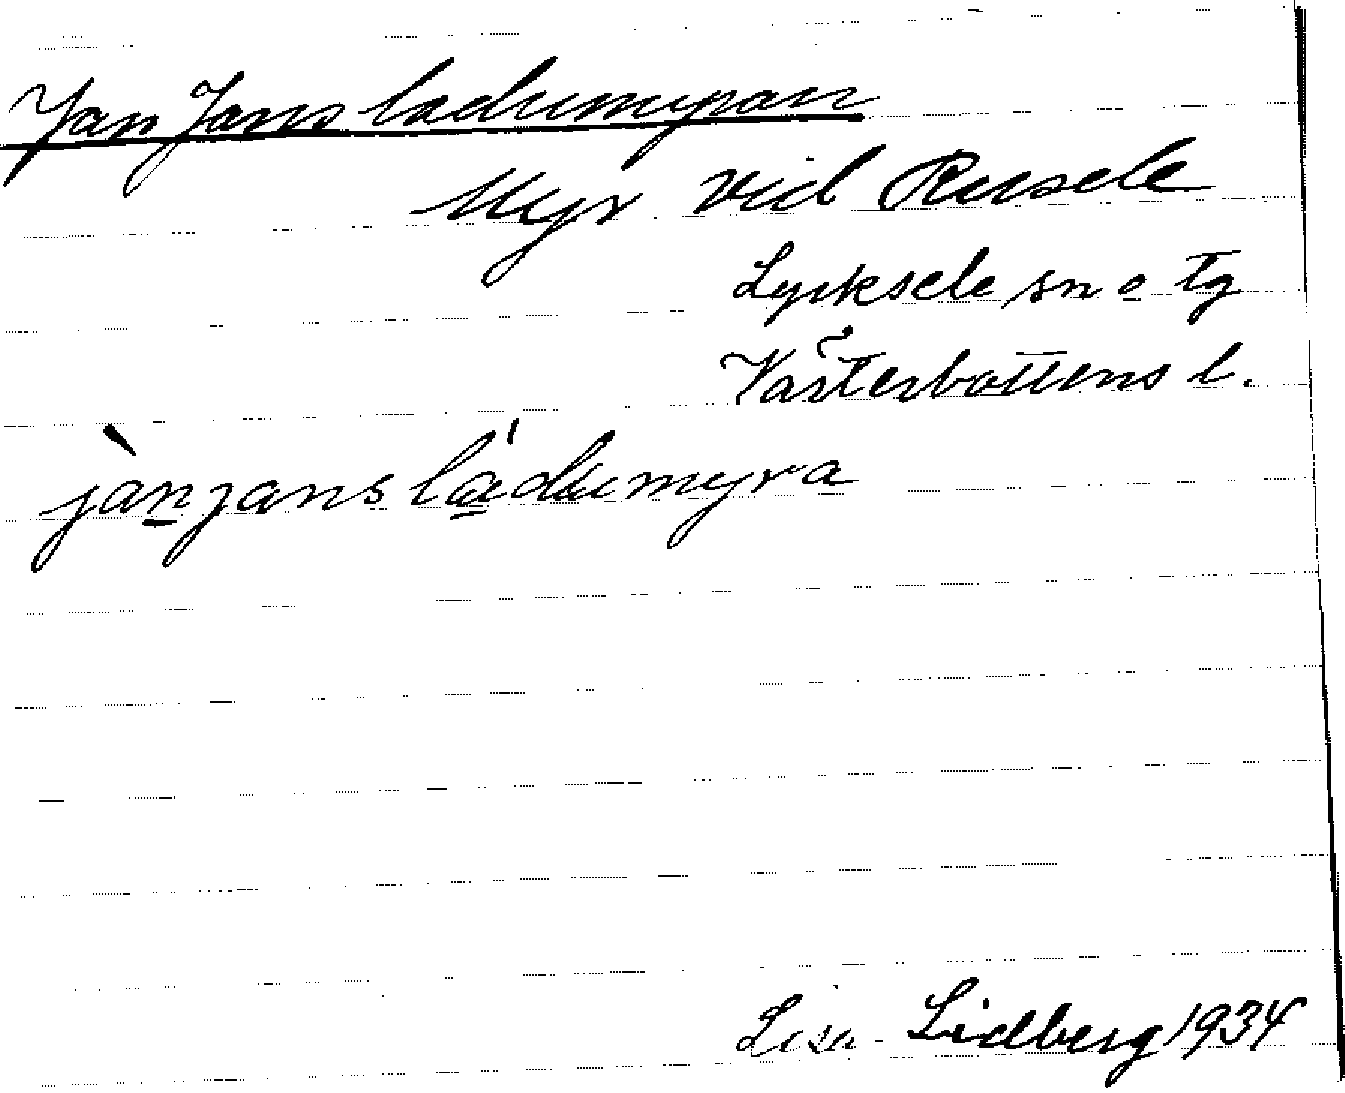 Jan Jans ladumyran
Myr vid Rusele
Lycksele sn o tg
Västerbottens l.
jànjans lá̱dumyra
Lisa Lidberg 1934